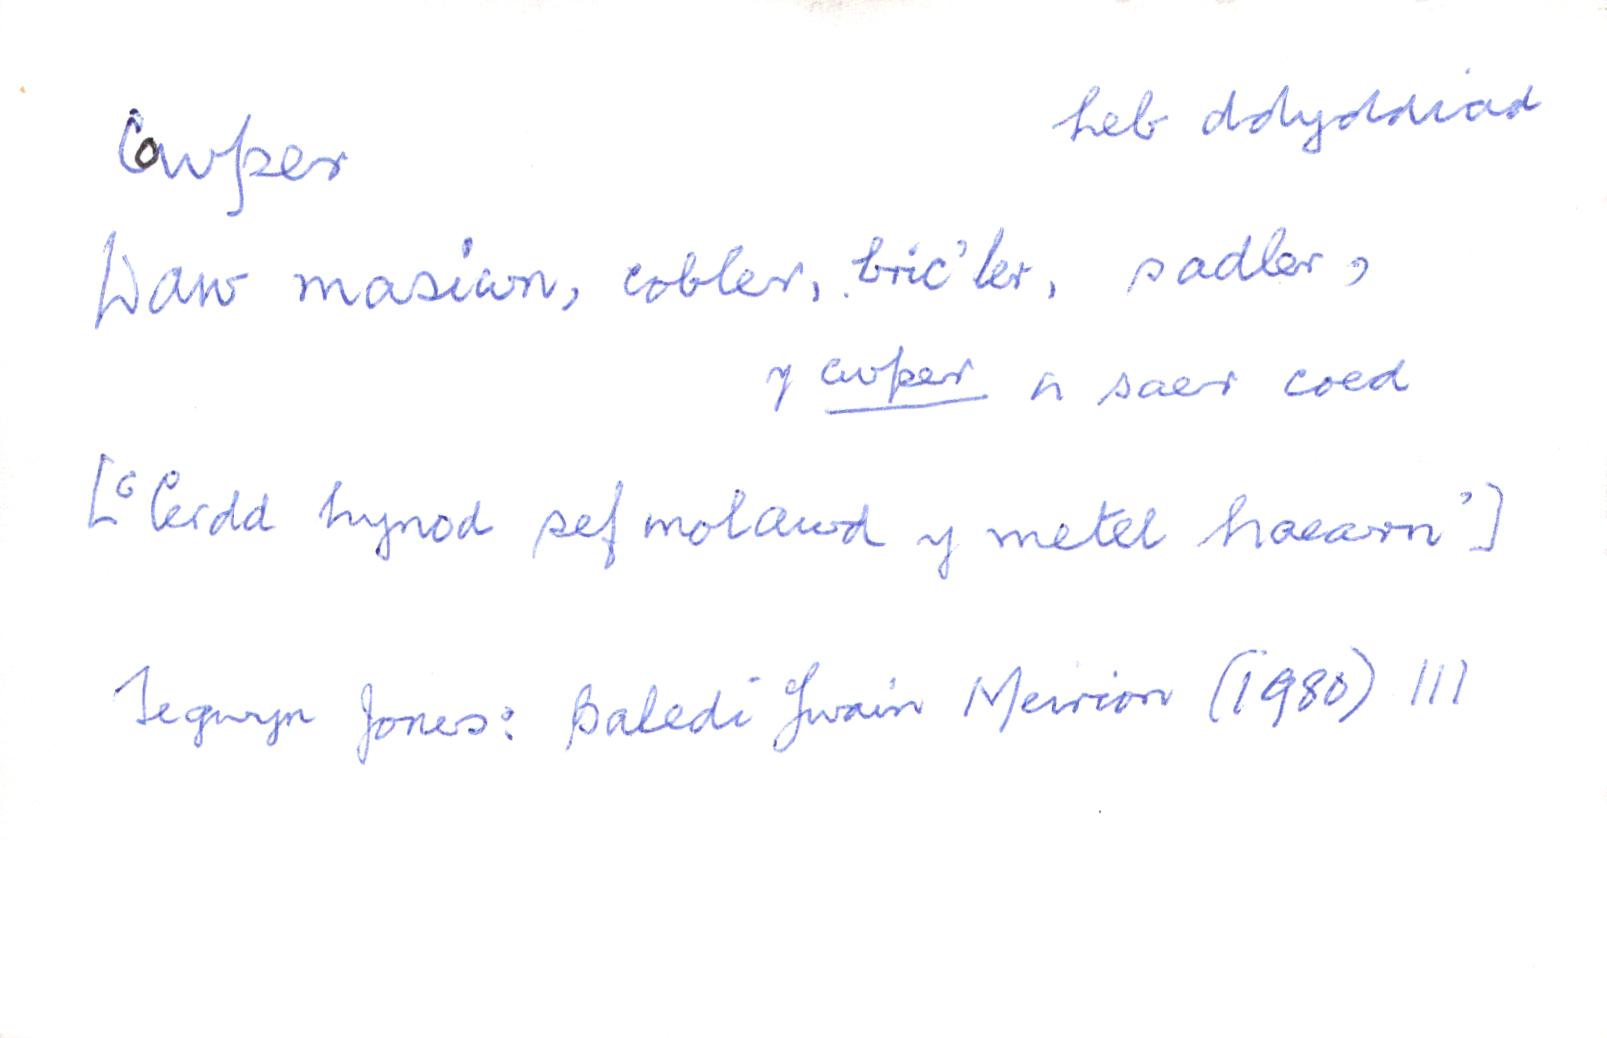 Cowper
heb ddyddiad
Daw masiwn, cobler, bric'ler, sadler,
y cwper a saer coed
['Cerdd hynod sef molawd y metel haearn']
Tegwyn Jones: Baledi Ywain Meirion (1980) 111